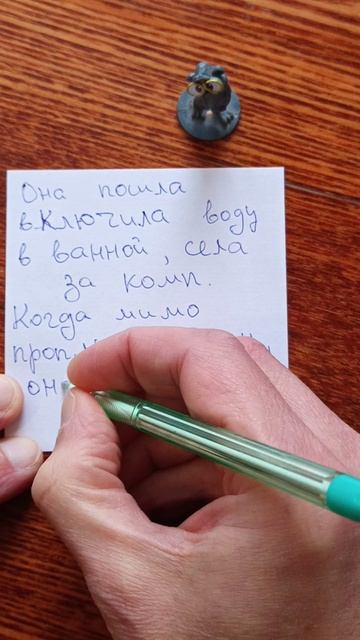 Она пошла
включила воду
в ванной, села
за комп.
Когда мимо